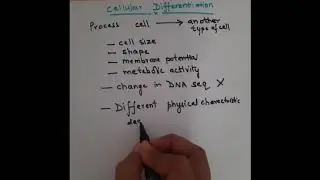 Cellular Differentiation
Process cell → another type of cell
— cell size
— shape
— membrane potential
— metabolic activity
— change in DNA seq X
— Different physical characteristic
des